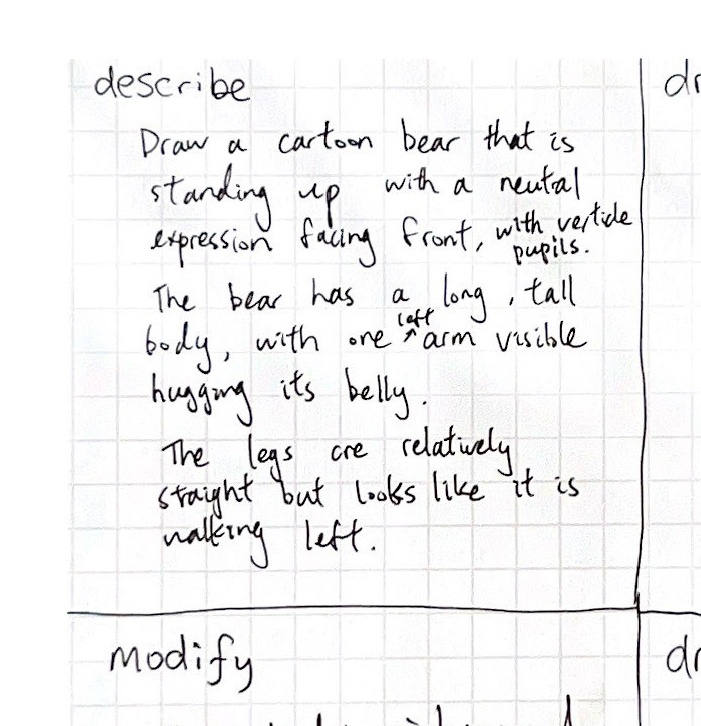 describe
dr
Draw a cartoon bear that is
standing up with a neutal
expression facing front, with verticle
pupils.
The bear has a long, tall
body, with one left arm visible
hugging its belly.
The legs are relatively
straight but looks like it is
walking left.
modify
dr